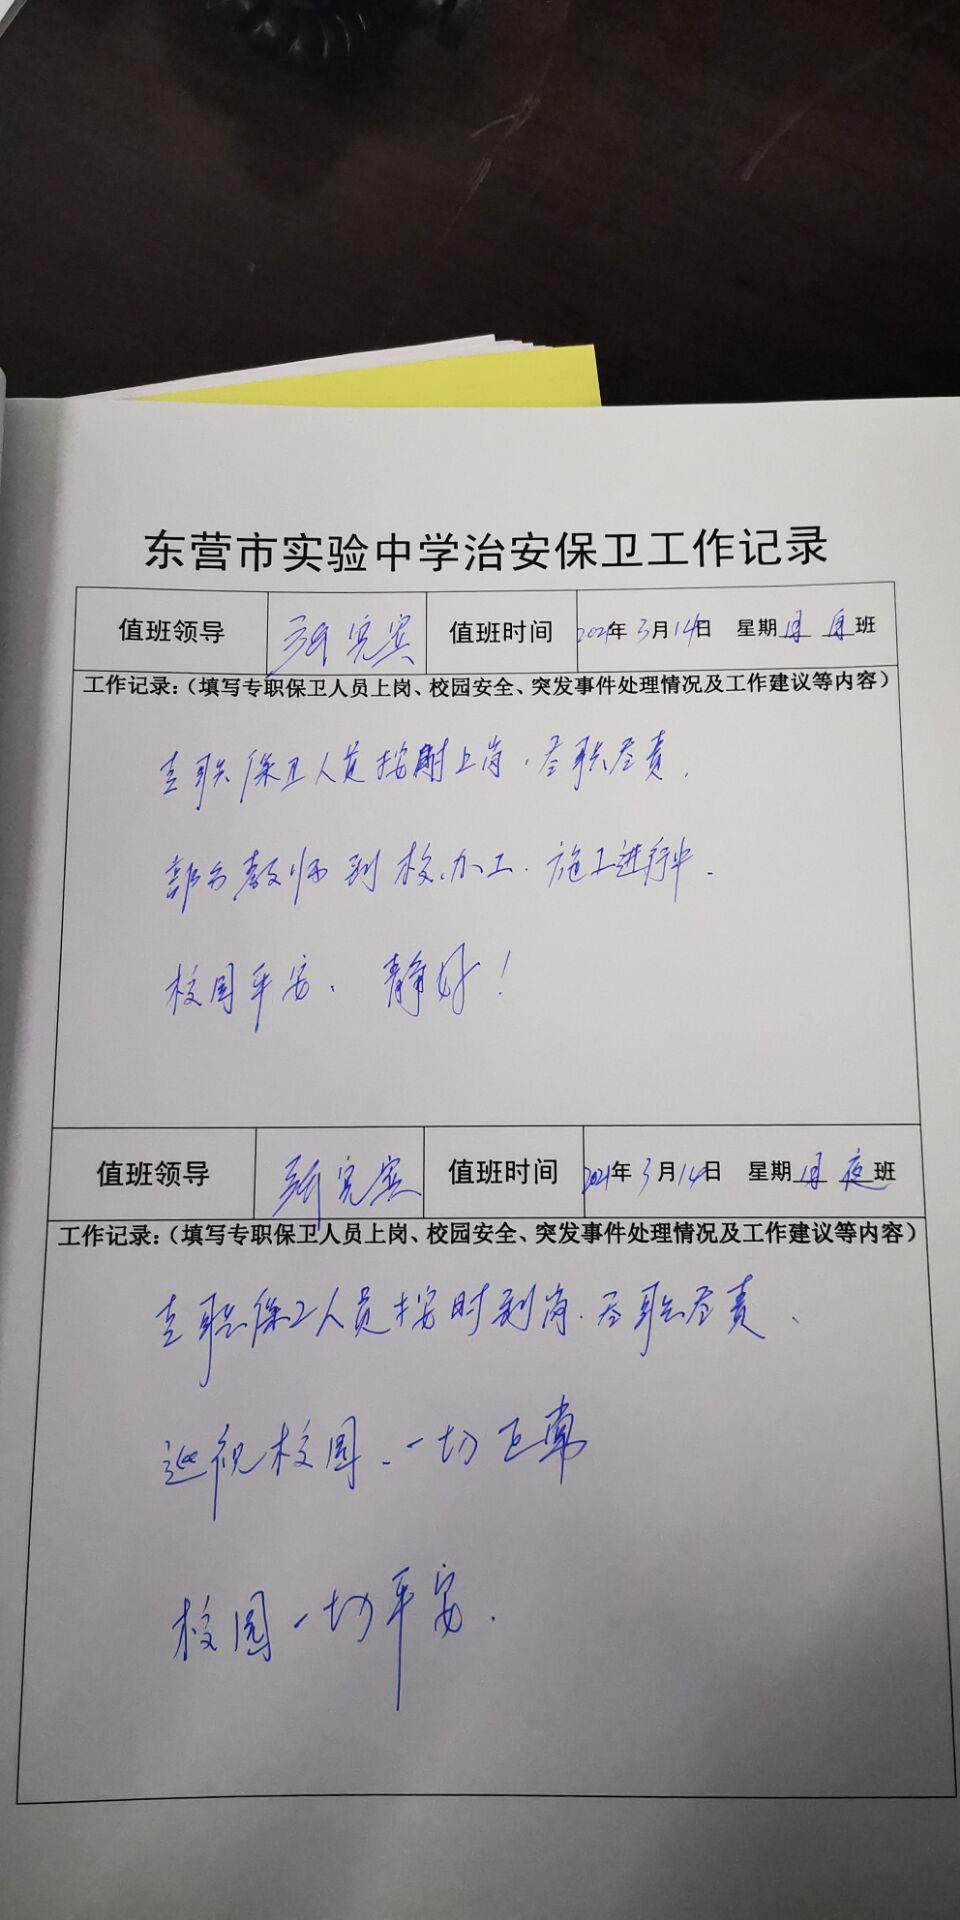 东营市实验中学治安保卫工作记录
值班领导 值班时间 2021年3月14日 星期日 班
工作记录:(填写专职保卫人员上岗、校园安全、突发事件处理情况及工作建议等内容)
专职保卫人员按时上岗,尽职尽责.
部分教师到校加工.施工进行中.
校园平安、静好!
值班领导 值班时间 2021年3月14日 星期日 夜班
工作记录:(填写专职保卫人员上岗、校园安全、突发事件处理情况及工作建议等内容)
专职保卫人员按时到岗.尽职尽责、
巡视校园、一切正常
校园一切平安.